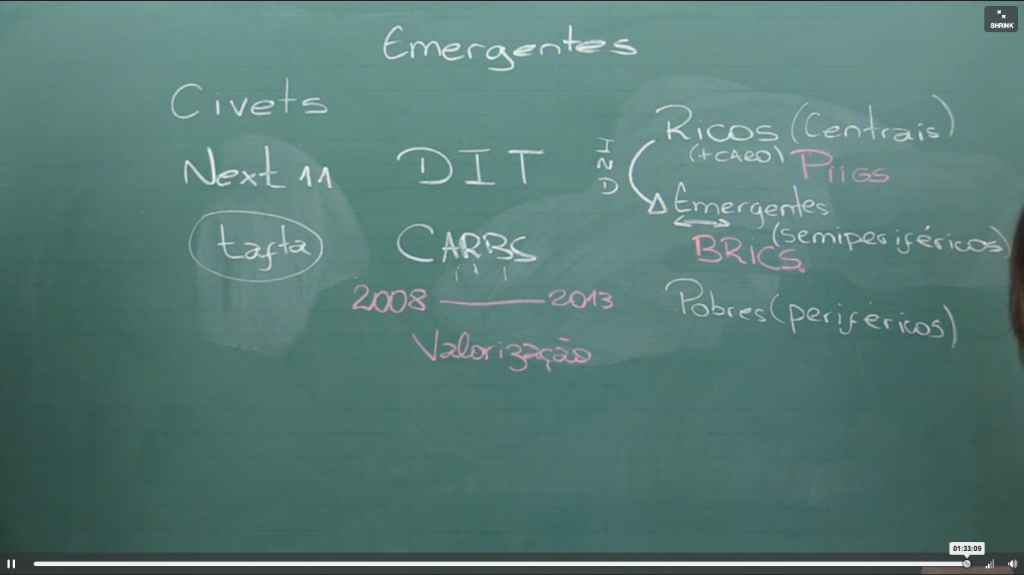 SHRINK
Emergentes
Civets
Next 11
tafta
DIT
CARBS
2008 — 2013
Valorização
IND
Ricos (Centrais)
(+CARO) PIIGS
Emergentes
(semiperiféricos)
BRICS
Pobres (periféricos)
01:33:09